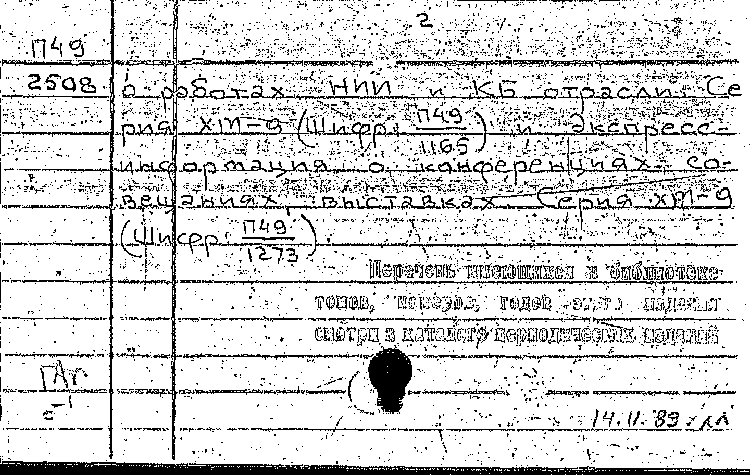 2
П49
2508
о работах НИИ и КБ отрасли. Се
рия ХМ-9 (Шифр: П49
1165) и Экспресс-
информация о конференциях, со-
вещаниях, выставках. Серия ХМ-9
(Шифр: П49
1273).
Перечень имеющихся в библиотеке
томов, номеров, годов этого издания
смотри в каталоге периодических изданий
14.11.89